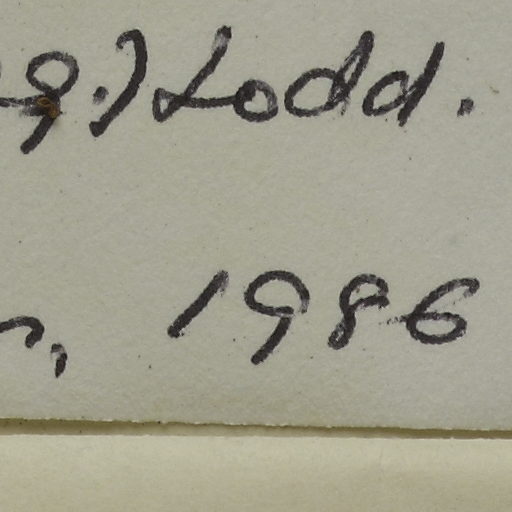 g.) Lodd.
, 1986